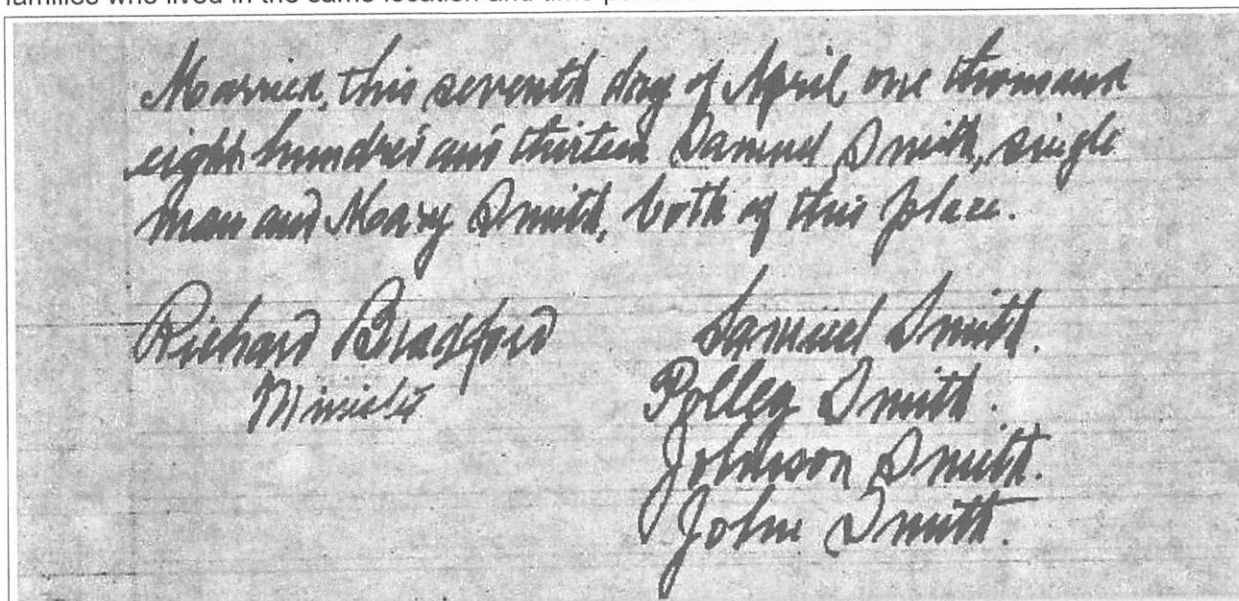 families who lived in the same location and time
Married, this seventh day of April, one thousand
eight hundred and thirteen Samuel Smith, single
man and Mary Smith, both of this place.
Richard Bradford
Minister
Samuel Smith.
Polley Smith.
Johnson Smith.
John Smith.